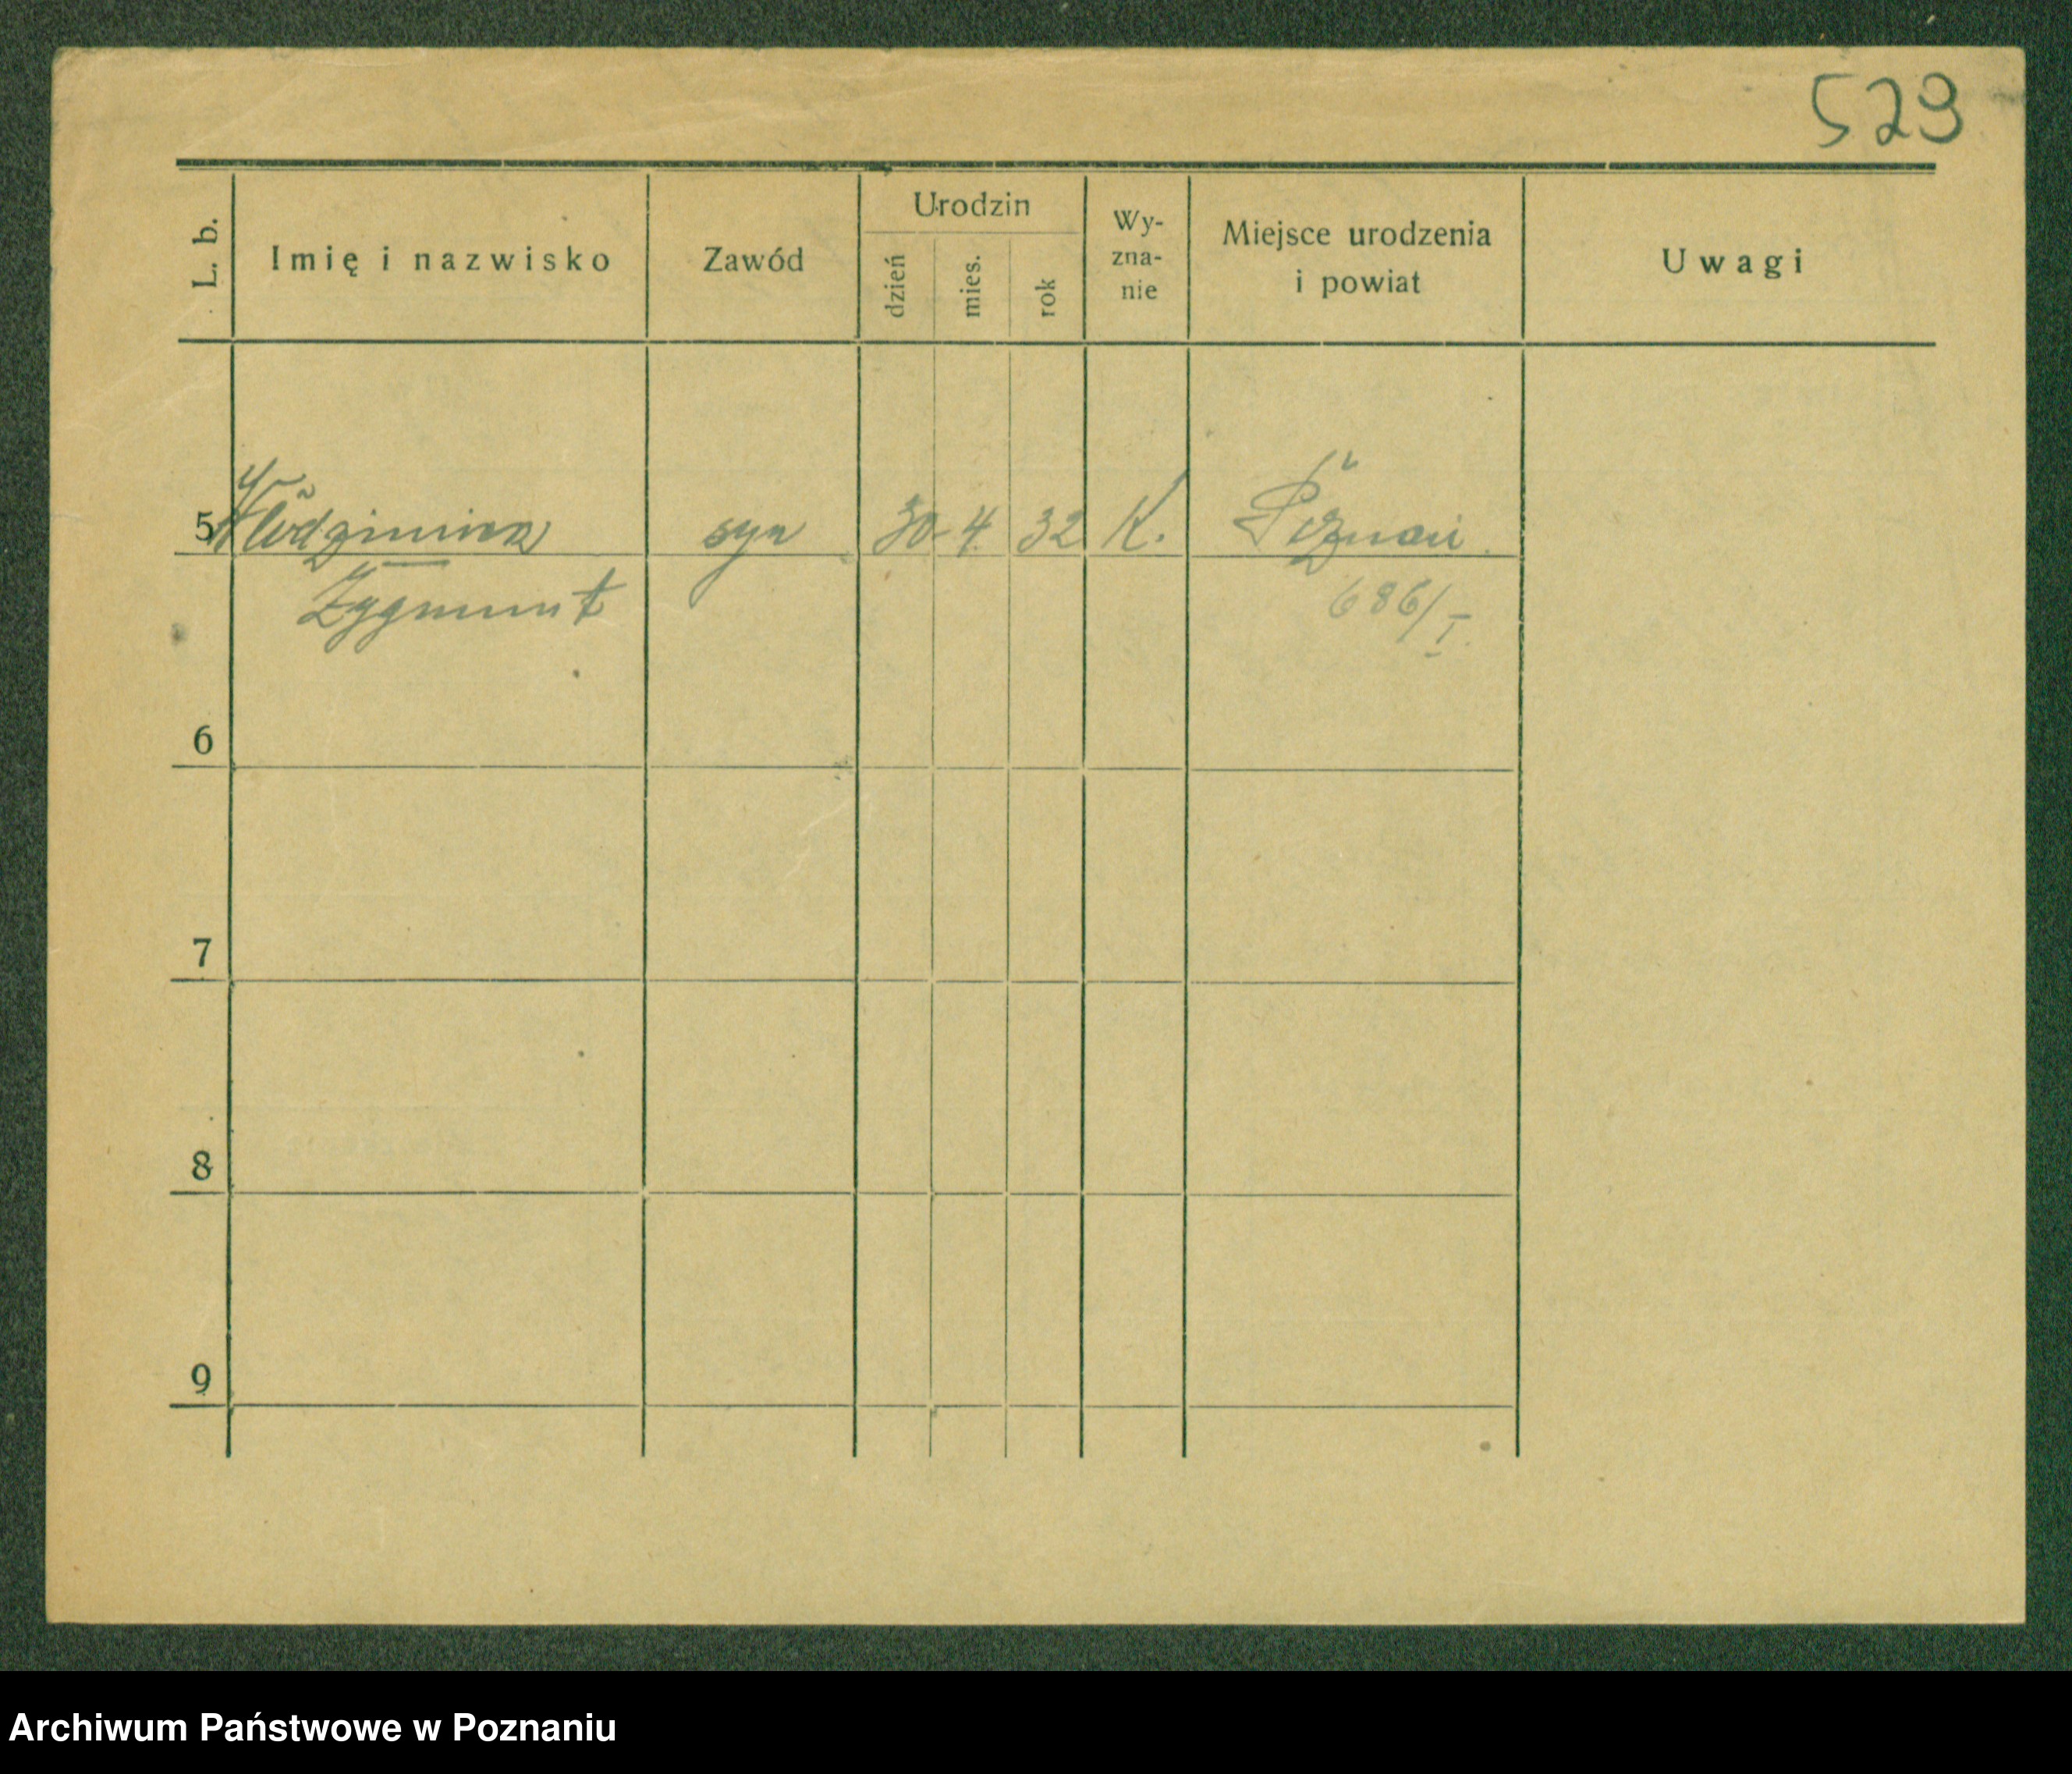 523
L. b.
Imię i nazwisko
Zawód
Urodzin
dzień
mies.
rok
Wy-
zna-
nie
Miejsce urodzenia
i powiat
Uwagi
5 Włodzimierz syn 30 4 32 K. Poznań
Zygmunt 686/I.
6
7
8
9
Archiwum Państwowe w Poznaniu